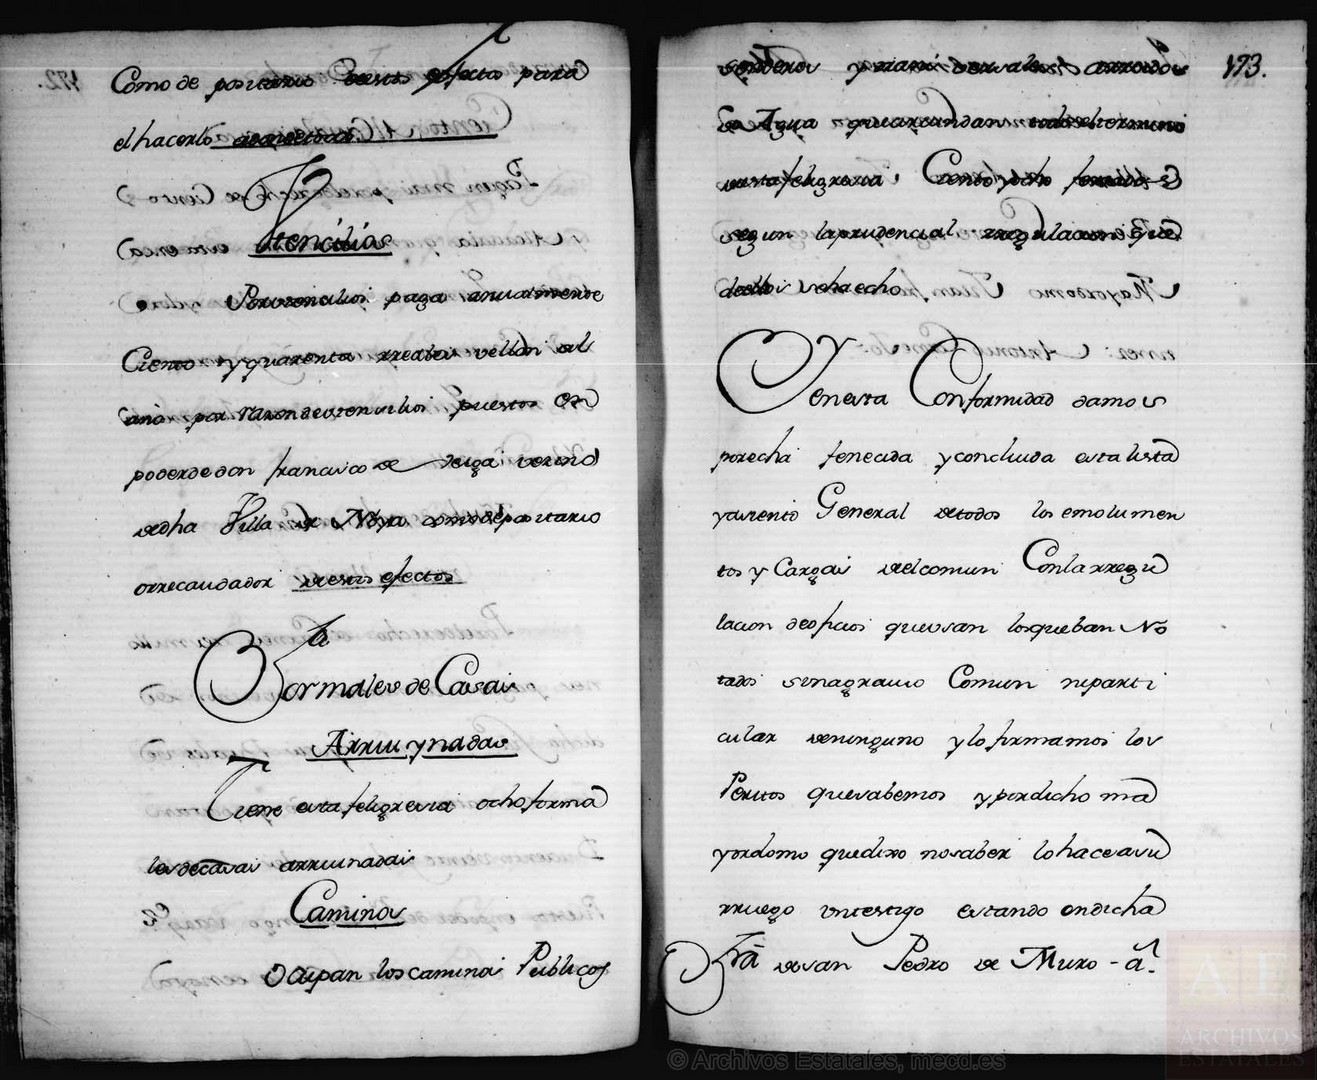 Como de positario destos efectos para
el hacerlo
Utencilios
Por utencilios paga anualmente
Ciento y quarenta rreales vellon al
año por razon de utensilios puestos en
poder de don francisco de Veiga vecino
de dha Villa de Noya como depositario
o rrecaudador destos efectos
Formales de Casas
Arruynadas
Tiene esta feligresia ocho forma
les de casas arruinadas
Caminos
Ocupan los caminos Publicos
173.
senderos y arroios
de Agua que circundan todo el termino
desta feligresia Ciento y ocho ferrados
segun la prudencial rregulacion que
dello se ha echo
Y en esta Conformidad damos
por echa fenecida y concluida esta lista
y asiento General de todos los emolumen
tos y Cargas del comun Con la rregu
lacion de oficios que usan los que ban No
tados sin agravio Comun ni parti
cular de ninguno y lo firmamos los
Peritos que sabemos y por dicho ma
yordomo que dixo no saber lo hace a su
rruego un testigo estando en dicha
frâ de san Pedro de Muro - a.
© Archivos Estatales, mecd.es
AE
ARCHIVOS
ESTATALES